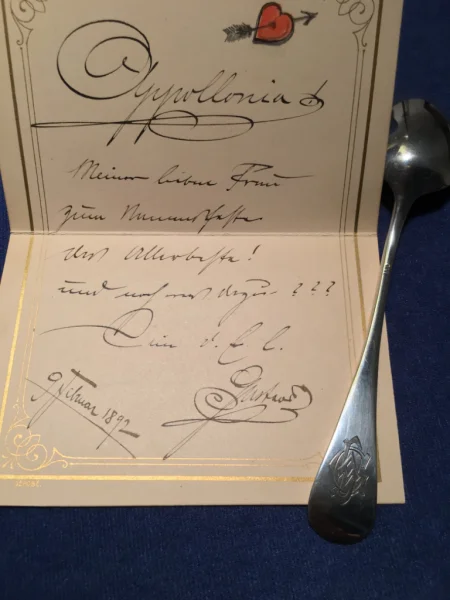 Appollonia
Meiner lieben Frau
zum Namensfeste
das Allerbeste!
und noch was dazu - ???
Dein d. E. l.
Gustav
9 Februar 1892